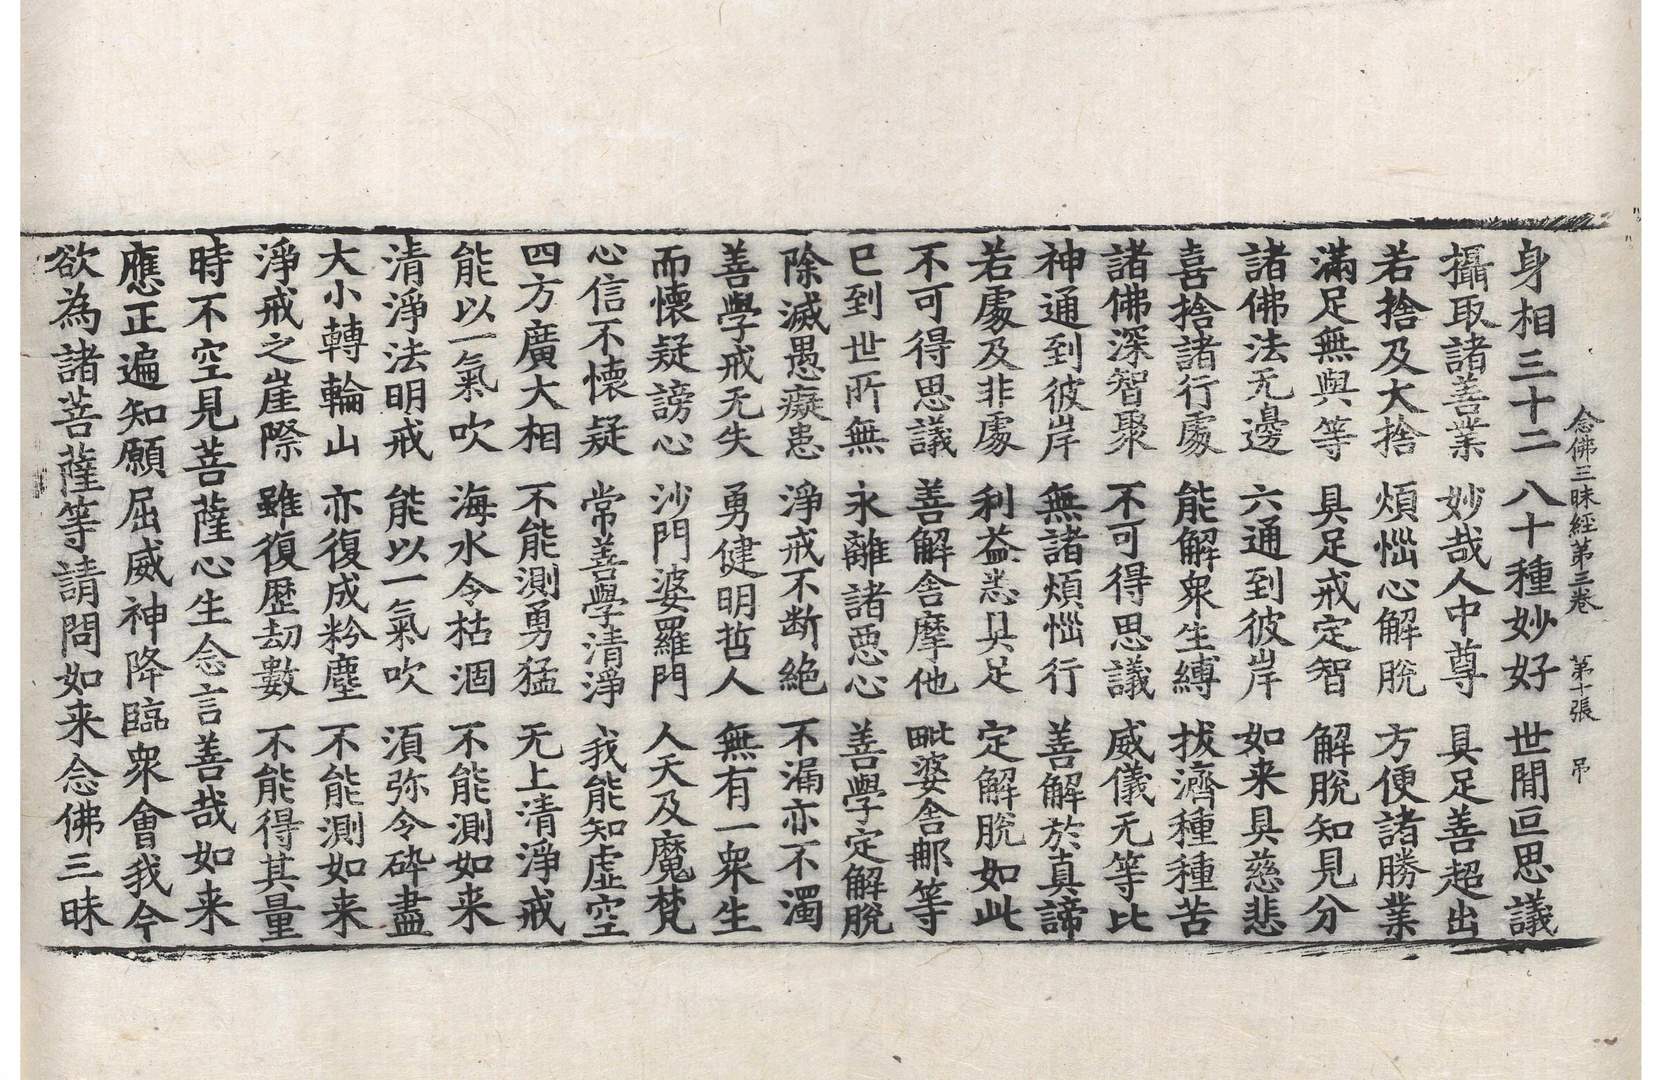 念佛三昧經第三卷 第十張 吊
身相三十二 八十種妙好 世間叵思議
攝取諸善業 妙哉人中尊 具足善超出
若捨及大捨 煩惱心解脫 方便諸勝業
滿足無與等 具足戒定智 解脫知見分
諸佛法无邊 六通到彼岸 如来具慈悲
喜捨諸行處 能解衆生縛 拔濟種種苦
諸佛深智聚 不可得思議 威儀无等比
神通到彼岸 無諸煩惱行 善解於真諦
若處及非處 利益悉具足 定解脫如此
不可得思議 善解舍摩他 毗婆舍那等
已到世所無 永離諸惡心 善學定解脫
除滅愚癡患 淨戒不断絶 不漏亦不濁
善學戒无失 勇健明哲人 無有一衆生
而懷疑謗心 沙門婆羅門 人天及魔梵
心信不懷疑 常善學清淨 我能知虛空
四方廣大相 不能測勇猛 无上清淨戒
能以一氣吹 海水令枯涸 不能測如来
清淨法明戒 能以一氣吹 湏弥令碎盡
大小轉輪山 亦復成粉塵 不能測如来
淨戒之崖際 雖復歷劫數 不能得其量
時不空見菩薩心生念言善哉如来
應正遍知願屈威神降臨衆會我今
欲為諸菩薩等請問如来念佛三昧